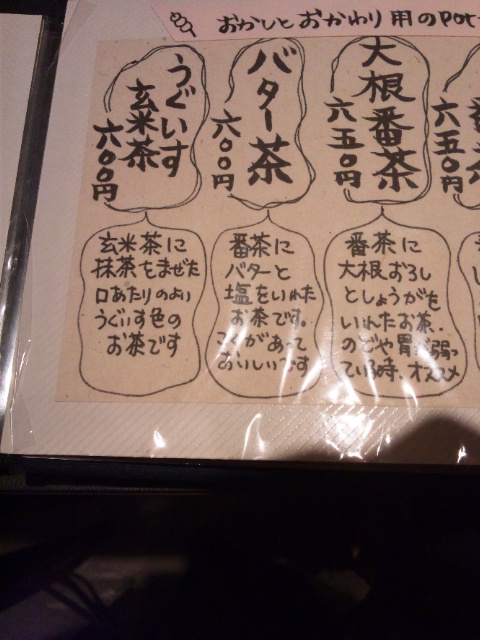 おかしとおかわり用のpot
大根番茶
六五〇円
番茶に
大根おろし
としょうがを
いれたお茶.
のどや胃が弱っ
ている時、オススメ
バター茶
六〇〇円
番茶に
バターと
塩をいれた
お茶です。
こくがあって
おいしいです
うぐいす
玄米茶
六〇〇円
玄米茶に
抹茶をまぜた
口あたりのよい
うぐいす色の
お茶です
六五〇円